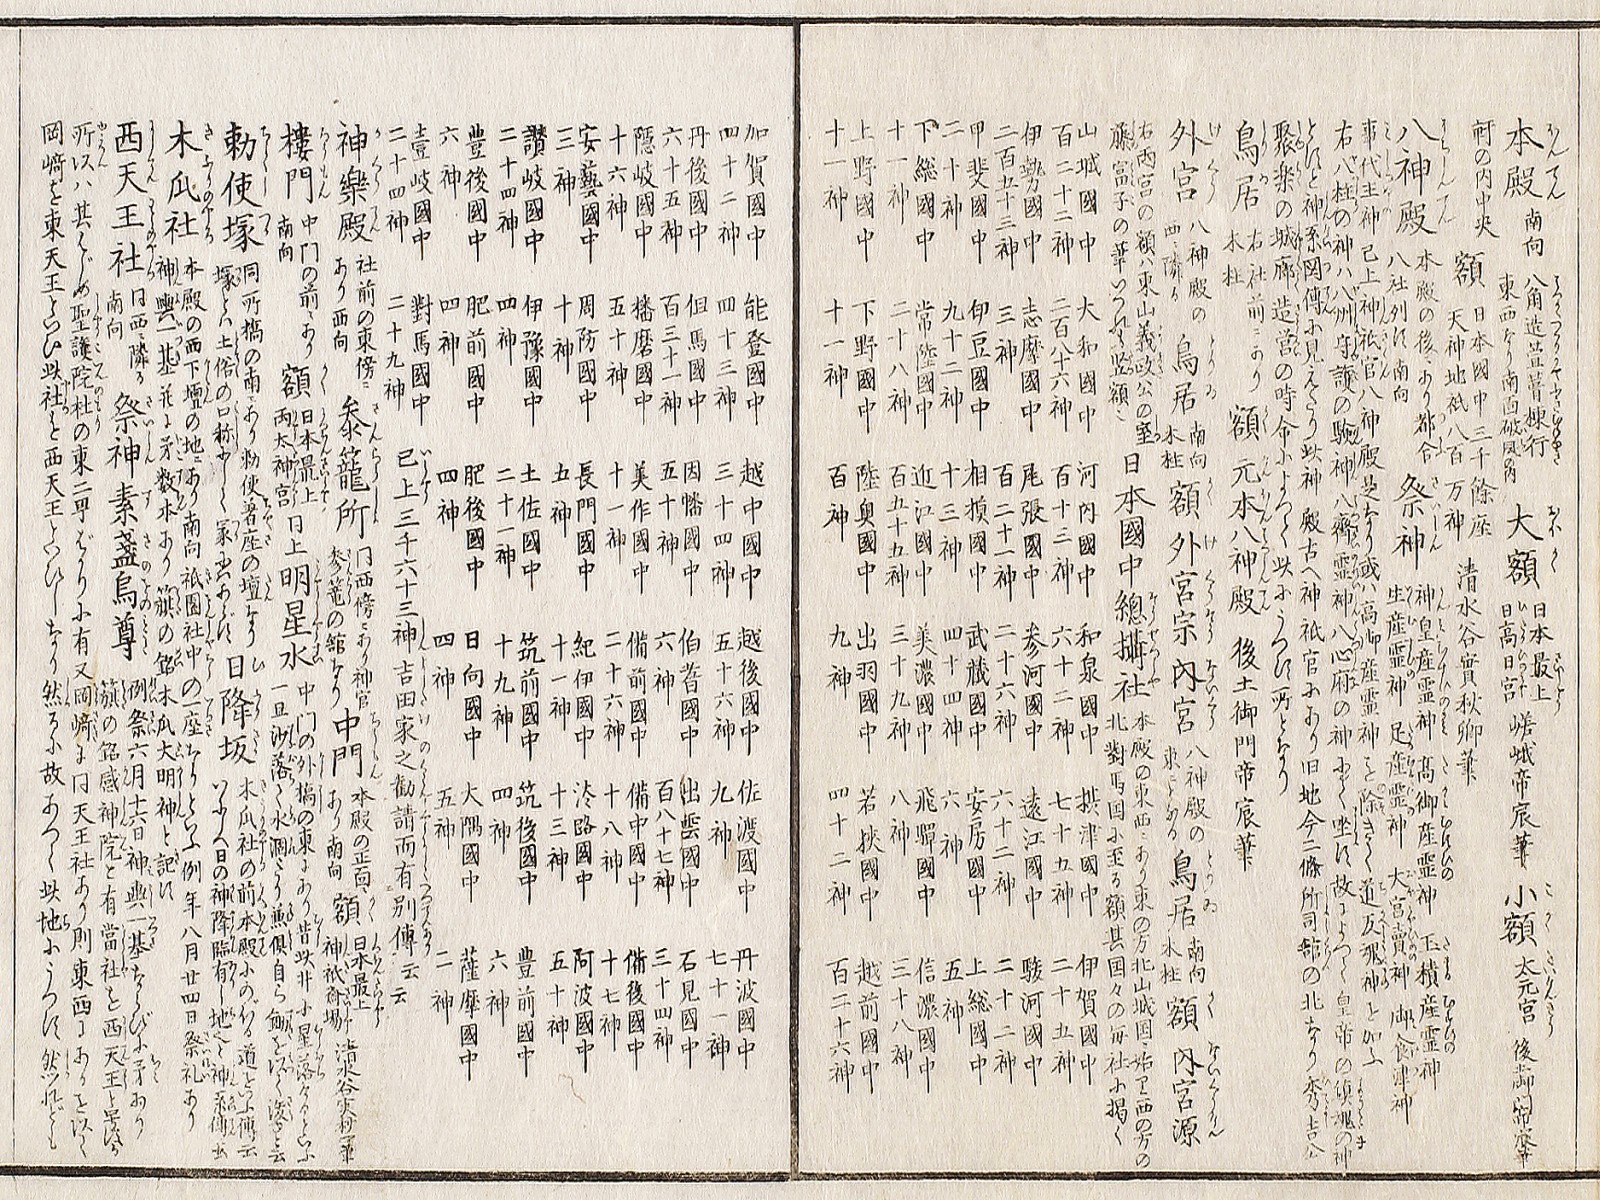 本殿 南向 八角造萱葺棟行東西なり南面破風有 大額 日本最上日高日宮 嵯峨帝宸筆 小額 太元宮 後土御門帝宸筆
額 日本國中三千餘座天神地祇八百万神 清水谷實秋卿筆
八神殿 本殿の後にあり都合八社列に南向 祭神 神皇産霊神 高御産霊神 玉積産霊神 生産霊神 足産霊神 大宮賣神 御食津神
事代主神 已上神祇官八神殿是なり或ハ高御産霊神を除きて道反視神を加ふ
右八柱の神ハ八州守護の驗神八齋霊神八心府の神にて坐に故によつて皇帝の鎮魂の神
とに神系図傳に見えたり此神殿古へ神祇官にあり旧地今二條所司舘の北なり秀吉公
聚楽の城廓造営の時命によつて此にうつに所となり
鳥居 右社前にあり木柱 額 元本八神殿 後土御門帝宸筆
外宮 八神殿の西に隣る 鳥居 南向木柱 額 外宮宗 内宮 八神殿の東にとなる 鳥居 南向木柱 額 内宮源
右両宮の額東山義政公の室藤富子の筆 日本國中總攝社 本殿の東西にあり東の方北山城国に始り西の方の北對馬国に至る額其国々の毎社に掲く
山城國中百二十二神 大和國中二百八十六神 河内國中百十三神 和泉國中六十二神 摂津國中七十五神 伊賀國中二十五神
伊勢國中二百五十三神 志摩國中三神 尾張國中百二十一神 参河國中二十六神 遠江國中六十二神 駿河國中二十二神
甲斐國中二十神 伊豆國中九十二神 相摸國中十三神 武藏國中四十四神 安房國中六神 上總國中五神
下總國中十一神 常陸國中二十八神 近江國中百五十五神 美濃國中三十九神 飛驒國中八神 信濃國中三十八神
上野國中十一神 下野國中十一神 陸奥國中百神 出羽國中九神 若挾國中四十二神 越前國中百二十六神
加賀國中四十二神 能登國中四十三神 越中國中三十四神 越後國中五十六神 佐渡國中九神 丹波國中七十一神
丹後國中六十五神 但馬國中百三十一神 因幡國中五十神 伯耆國中六神 出雲國中百八十七神 石見國中三十四神
隠岐國中十六神 播磨國中五十神 美作國中十一神 備前國中二十六神 備中國中十八神 備後國中十七神
安藝國中三神 周防國中十神 長門國中五神 紀伊國中三十一神 淡路國中十三神 阿波國中五十神
讃岐國中二十四神 伊豫國中二十四神 土佐國中二十一神 筑前國中十九神 筑後國中四神 豊前國中六神
豊後國中六神 肥前國中四神 肥後國中四神 日向國中四神 大隅國中五神 薩摩國中二神
壹岐國中二十四神 對馬國中二十九神 已上三千六十三神吉田家之勸請而有別傳云云
神樂殿 社前の東傍にあり西向 参籠所 門西傍にあり神官参篭の舘なり 中門 本殿の正面にあり南向 額 日本最上神祇齋場
樓門 中門の前にあり南向 額 日本最上両太神宮 日上 明星水 中門の外橋の東にあり昔此井に星落るといふ一旦沙落て水涸たり
勅使塚 同所橋の南にあり勅使着座の壇なり塚とハ土俗の口称にして冢にあらに 日降坂 木瓜社の前本殿にのぼる道をいふ傳云いにしへ日の神降臨有し地と神系傳云
木瓜社 本殿の西下壇の地にあり南向祇園社中の一座なりといふ例年八月廿四日祭礼あり神輿一基并に矛数本あり籏の銘木瓜大明神と記に
西天王社 同西に隣る南向 祭神 素盞烏尊 例祭六月十六日神輿一基ならびに矛あり籏の銘感神院と有當社を西天王と号に
所以ハ其はじめ聖護院杜の東二町ばかりに有又岡﨑に同天王社あり則東西にあるを以て
岡﨑を東天王といひ此社を西天王といひしなり然るに故あつて此地にうつに然れども